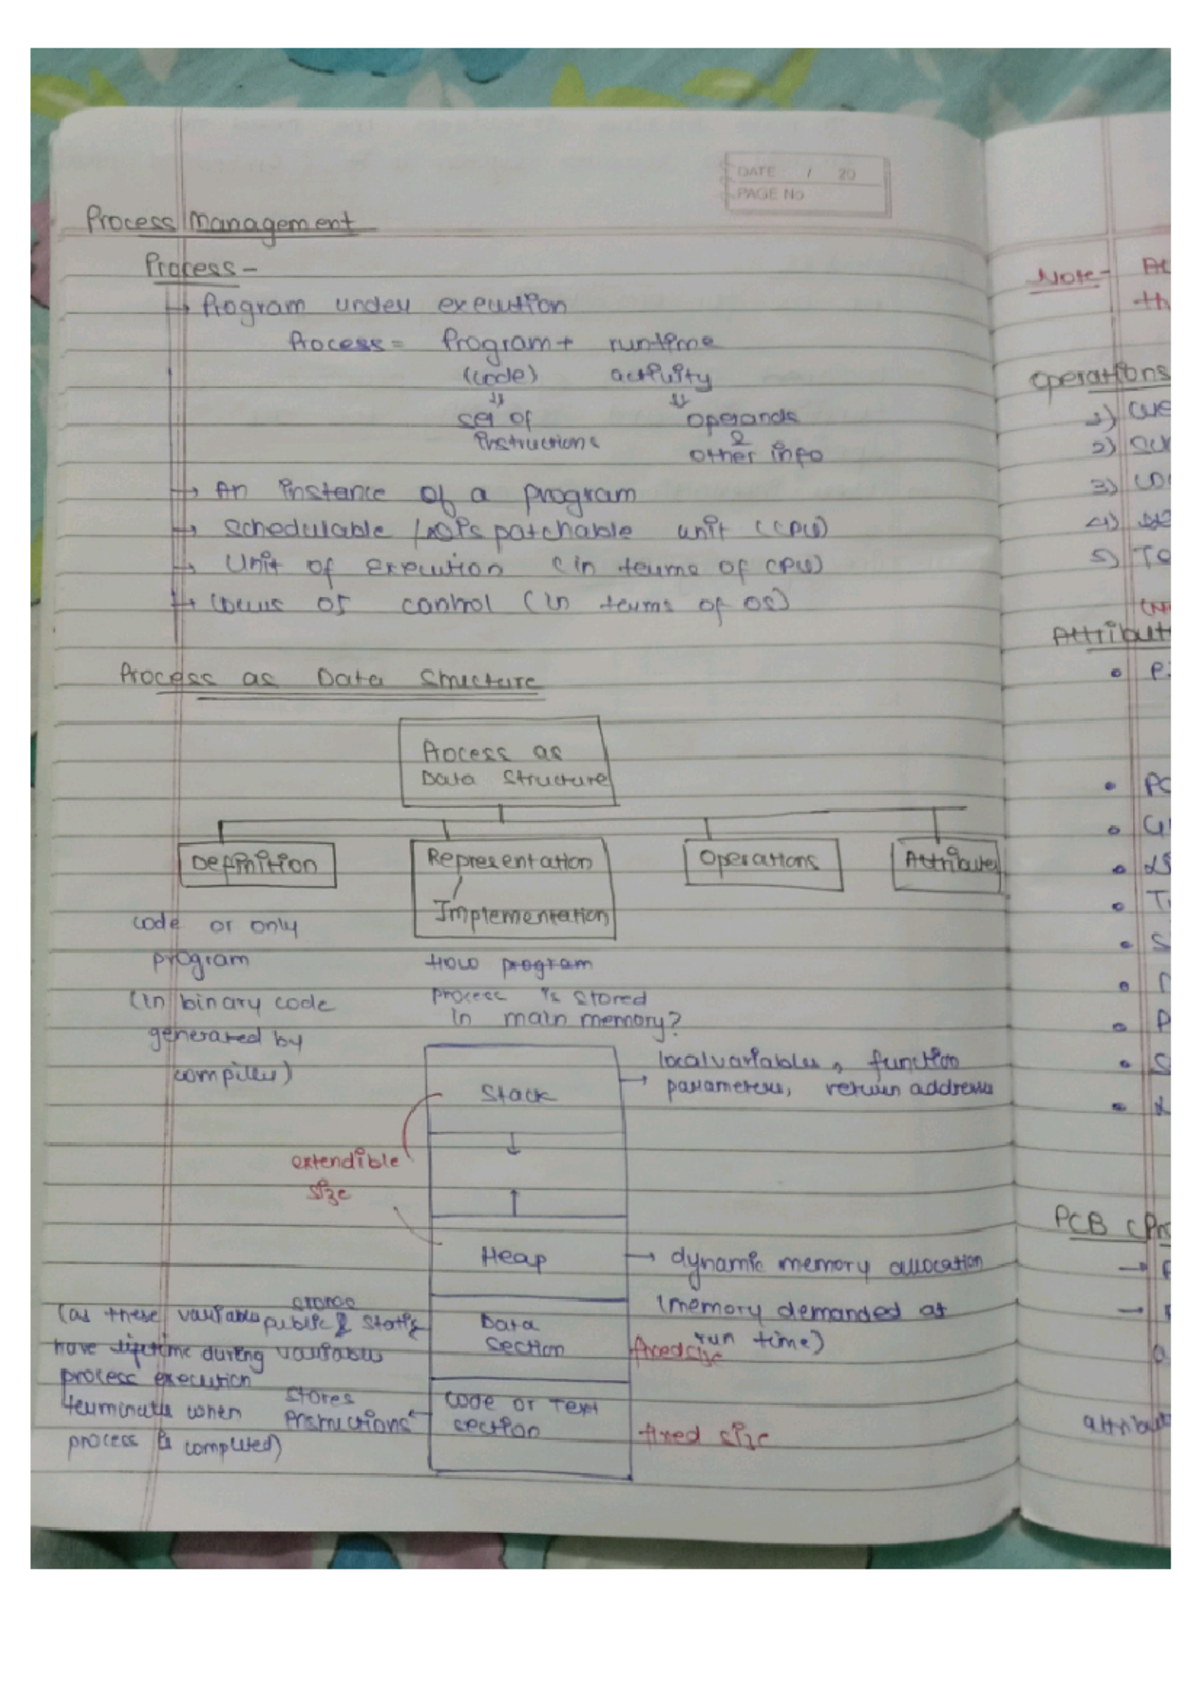 DATE: / 20
PAGE No
Process Management
Process -
→ Program under execution
Process = Program + runtime
(code) activity
⇓ ⇓
set of operands
instructions &
other info
→ An instance of a program
→ Schedulable / Dispatchable unit (CPU)
→ Unit of execution (in terms of CPU)
→ Locus of control (in terms of OS)
Process as Data Structure
Process as
Data Structure
Definition
Representation
/
Implementation
Operations
Attributes
code or only
program
(in binary code
generated by
compiler)
How program
process is stored
in main memory?
Stack
→ local variables, function
parameters, return address
extendible
size
↓
↑
Heap
→ dynamic memory allocation
(memory demanded at
run time)
Data
section
fixed size
stores
public & static
variables
(as these variables
have lifetime during
process execution
terminate when
process is completed)
code or Text
section
stores
instructions
fixed size
Note-
th
Operations
1)
2)
3)
4)
5) To
Attribut
• P
• PC
•
•
• T
• S
•
• P
• S
•
PCB (Pro
→
→
a
attribut